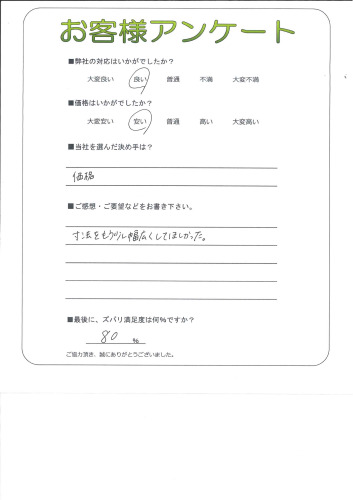 お客様アンケート
■弊社の対応はいかがでしたか?
大変良い 良い 普通 不満 大変不満
■価格はいかがでしたか?
大変安い 安い 普通 高い 大変高い
■当社を選んだ決め手は?
価格
■ご感想・ご要望などをお書き下さい。
寸法をもう少し幅広くしてほしかった。
■最後に、ズバリ満足度は何%ですか?
80 %
ご協力頂き、誠にありがとうございました。